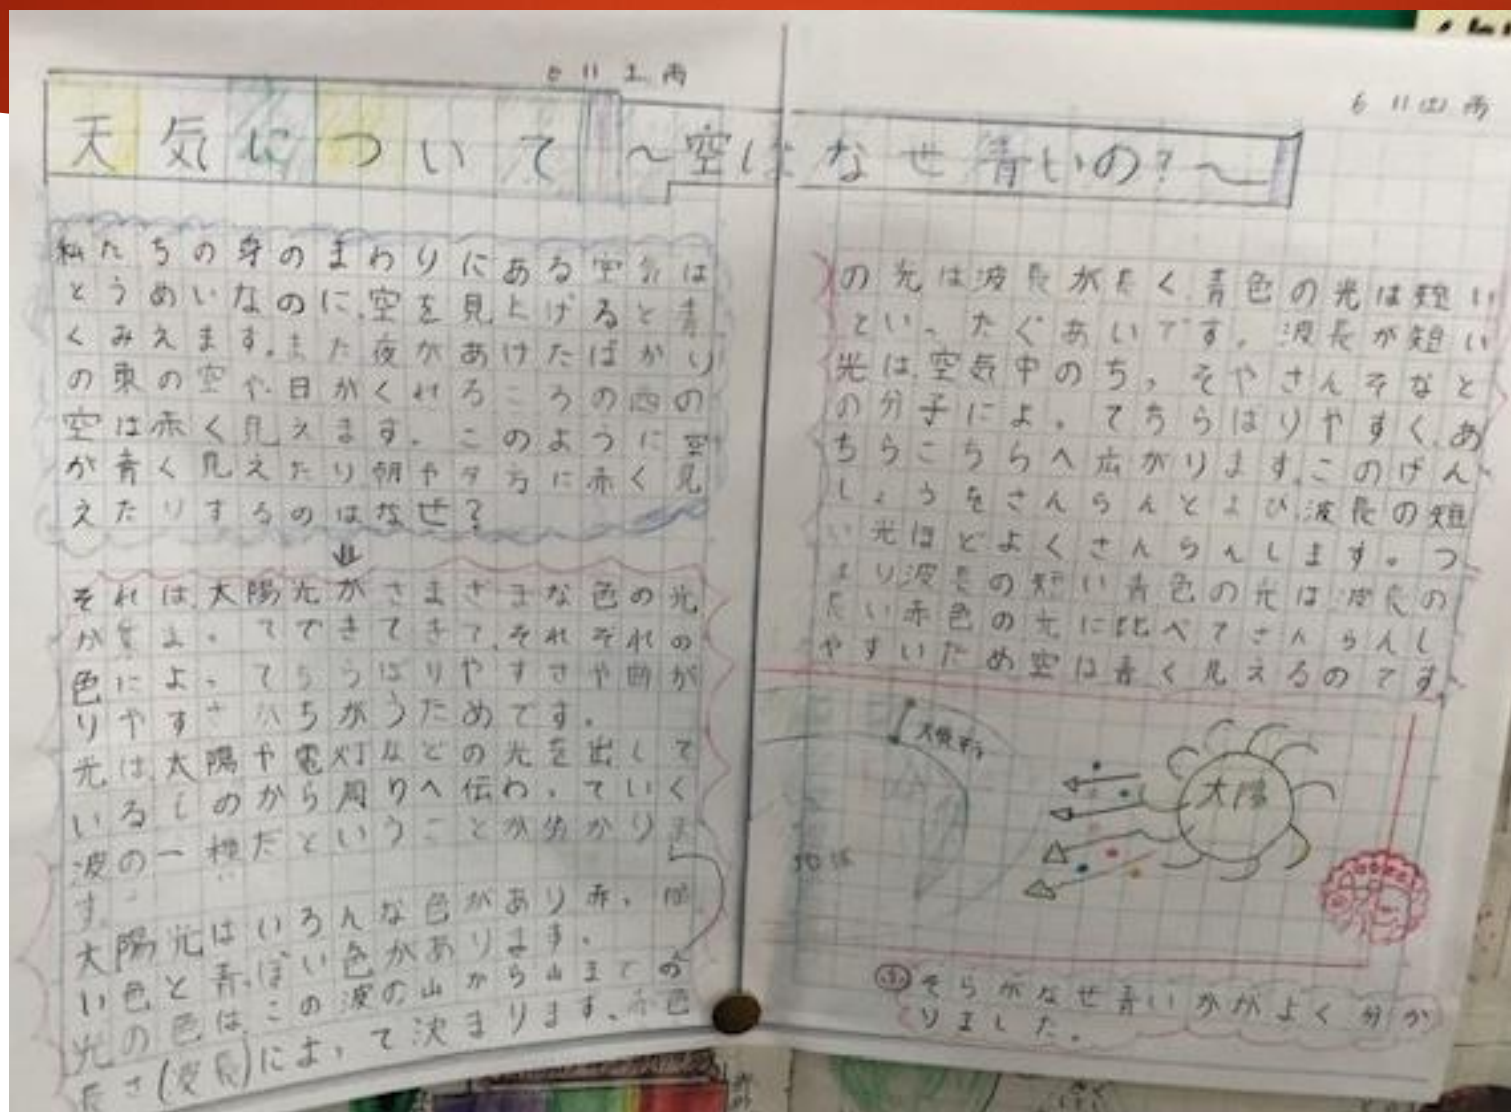 6 11 土 雨
天気について ～空はなぜ青いの?～
私たちの身のまわりにある空気は
とうめいなのに、空を見上げると青
くみえます。また夜があけたばかり
の東の空や、日がくれるころの西の
空は赤く見えます。このように空
が青く見えたり朝や夕方に赤く見
えたりするのはなぜ?
それは、太陽光がさまざまな色の光
が よってできてきて、それぞれの
色によってちらばりやすさや曲が
りやすさ ちがうためです。
光は太陽や電灯などの光を出して
いるものから周りへ伝わっていく
波の一種だということが分かりま
す。
大陽光はいろんな色があり赤、
い色と青っぽい色があります。
光の色は、この波の山から山までの
長さ(波長)によって決まります。赤色
6 11 (土) 雨
の光は波長が長く、青色の光は短い
といったぐあいです。波長が短い
光は、空気中のちっそやさんそなど
の分子によってちらばりやすく、あ
ちらこちらへ広がります。このげん
しょうをさんらんとよび、波長の短
い光ほどよくさんらんします。つ
まり波長の短い青色の光は、波長の
長い赤色の光に比べてさんらんし
やすいため空は青く見えるのです。
太陽
地球
そらがなぜ青いかがよく分か
りました。